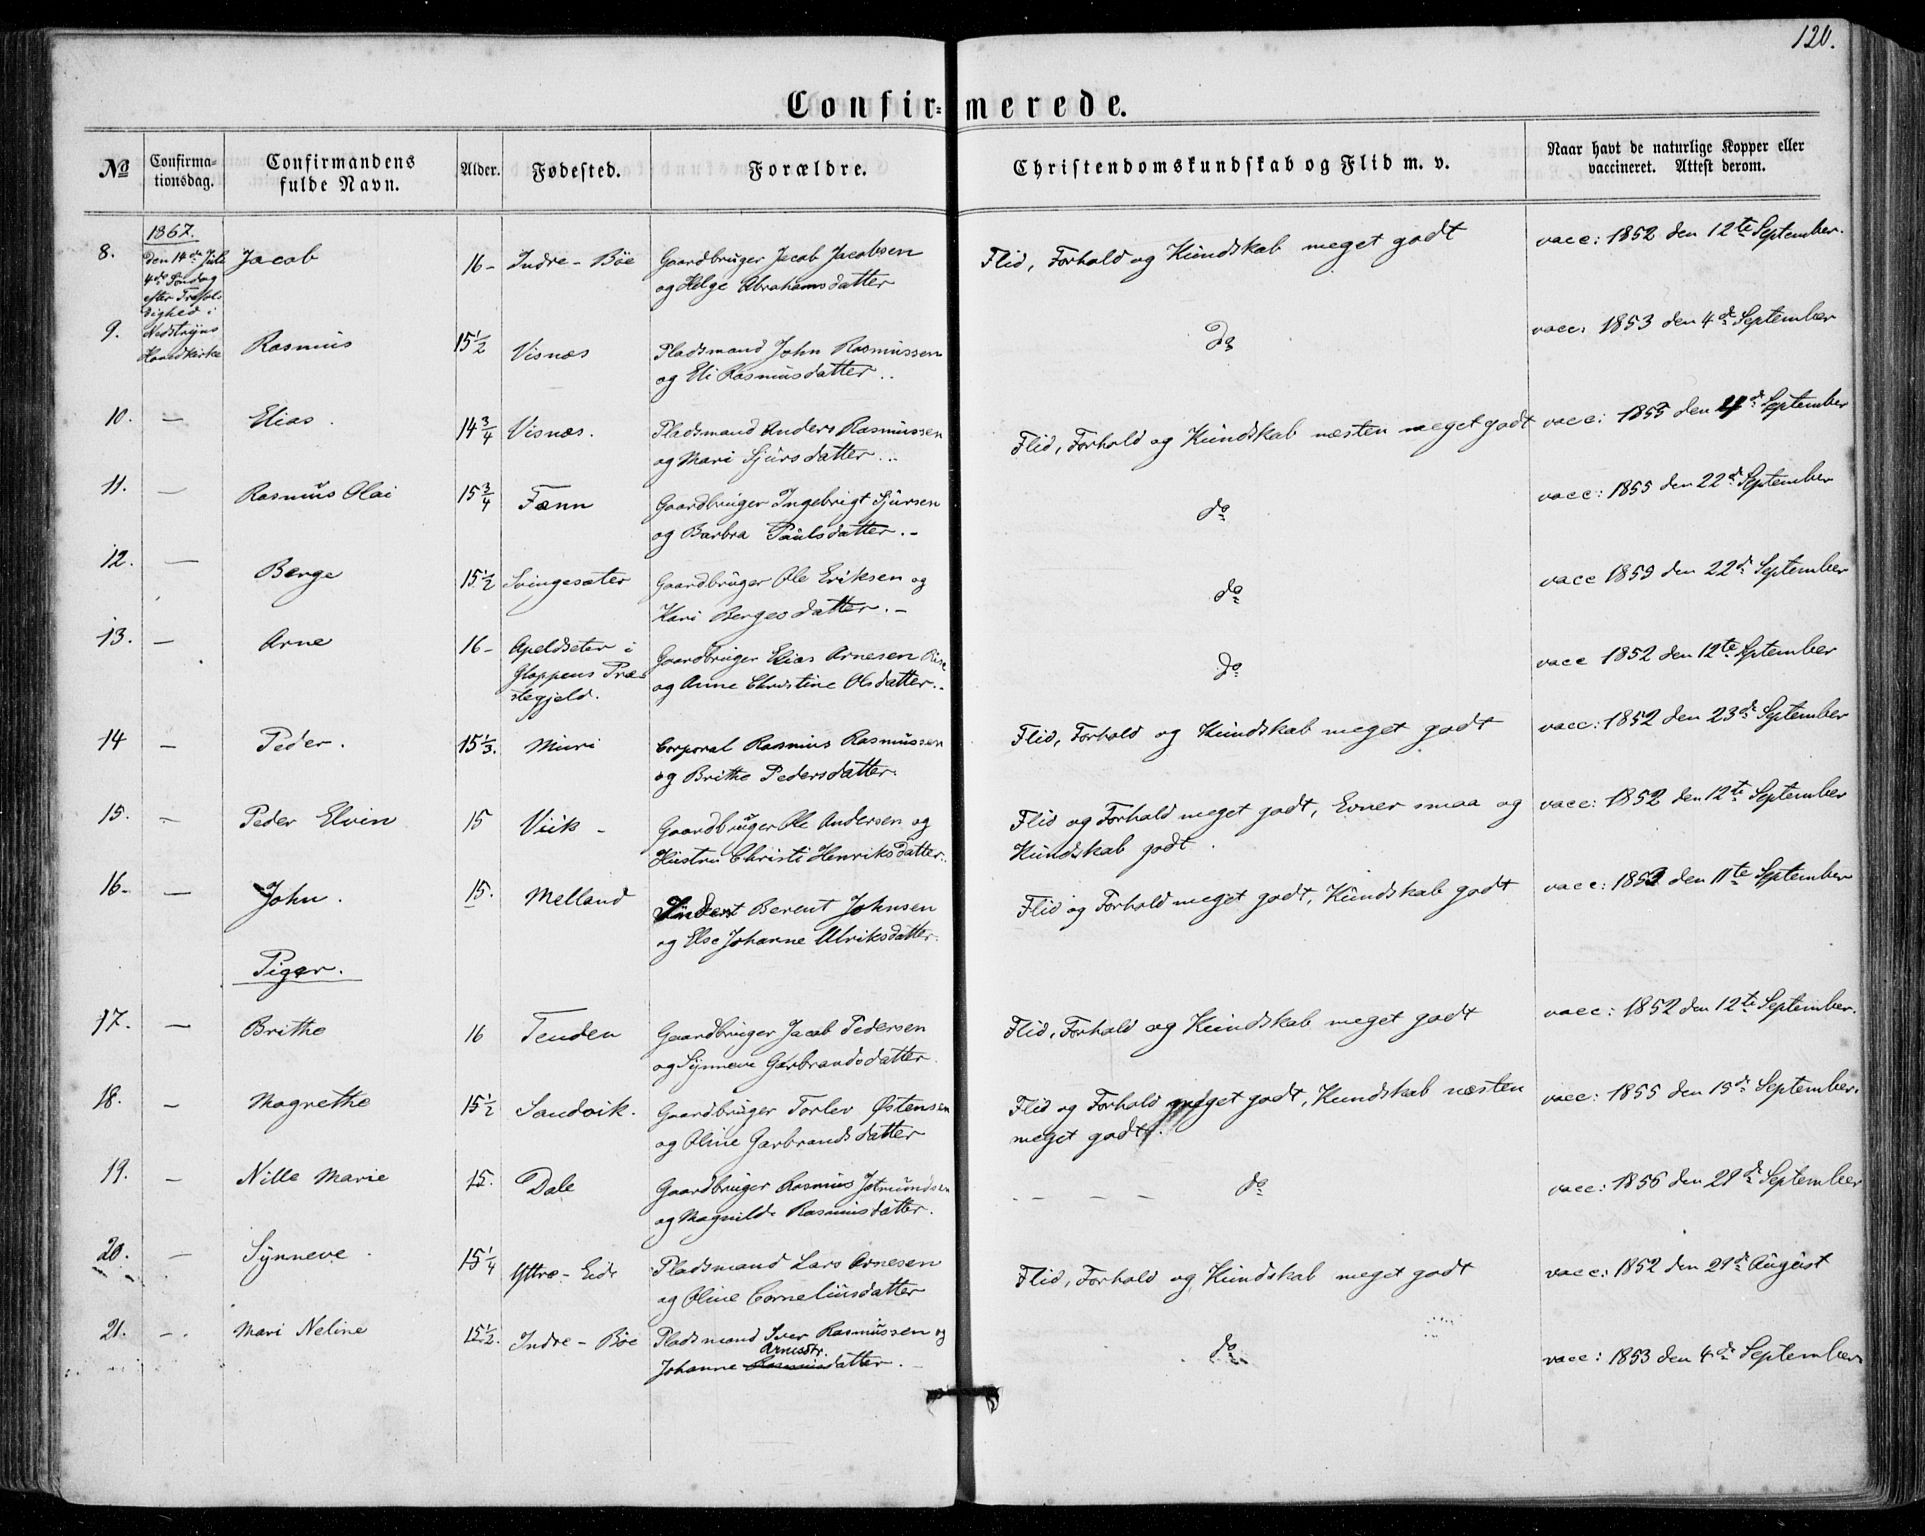 120.
Confir= merede.
No Confirma-tionsdag. Confirmandens fulde Navn. Alder. Fødested. Forældre. Christendomskundskab og Flid m. v. Naar havt de naturlige Kopper eller vaccineret. Attest derom.
1867.
Den 14de Juli 4de Søndag efter Trefoldighed i Nedstryns Hovedkirke
8. Jacob 16- Indre-Bøe Gaardbruger Jacob Jacobsen Flid, Forhold og Kundskab meget godt vacc: 1852 den 12te September.
og Helge Abrahamsdatter
9. Rasmus 15 1/2 Visnæs Pladsmand John Rasmussen do vacc: 1853 den 4de September
og Eli Rasmusdatter..
10. — Elias. 14 3/4 Visnæs. Pladsmand Anders Rasmussen Flid, Forhold og Kundskab næsten meget godt vacc: 1855 den 4de September
og Mari Sjursdatter...
11. — Rasmus Olai 15 3/4 Fænn Gaardbruger Ingebrigt Sjursen do vacc: 1855 den 22de September
og Barbra Paulsdatter.-
12. — Berge 15 1/2 Svingesæter Gaardbruger Ole Eriksen og do vacc 1859 den 22de September
Kari Bergesdatter.-
13. — Arne 16- Apeldseter i Gaardbruger Elias Arnesen do vacc 1852 den 12te September
Gloppens Præ- og Anne Christine Olsdatter.-
stegjeld.
14 — Peder. 15 1/3. Muri Corporal Rasmus Rasmussen Flid, Forhold og Kundskab meget godt vacc: 1852 den 23de September
og Brithe Pedersdatter.
15. — Peder Elvin 15 Viik - Gaardbruger Ole Andersen og Flid og Forhold meget godt, Evner smaa og vacc: 1852 den 12te September
Hustru Christi Henriksdatter. Kundskab godt.
16- — John. 15. Melland Berent Johnsen Flid og Forhold meget godt, Kundskab godt vacc: 1852 den 11te September
og Else Johanne Ulriksdatter.
Piger.
17. — Brithe 16 Tenden Gaardbruger Jacob Pedersen Flid, Forhold og Kundskab meget godt vacc: 1852 den 12te September.
og Synneve Garbrandsdatter.
18. — Magrethe 15 1/2 Sandvik. Gaardbruger Torlev Østensen Flid og Forhold meget godt, Kundskab næsten vacc: 1855 den 15de September.
og Oline Garbrandsdatter meget godt.
19. — Nille Marie 15. Dale Gaardbruger Rasmus Jetmundsen — — — — do vacc: 1856 den 29de September
og Magnilde Rasmusdatter.
20. — Synneve. 15 1/4 Yttre-Eide Pladsmand Lars Arnesen Flid, Forhold og Kundskab meget godt vacc: 1852 den 29de August
og Oline Corneliusdatter
21. — Mari Neline 15 1/2. Indre-Bøe Pladsmand Iver Rasmussen og do vacc: 1853 den 4de September
Arnesdtr.
Johanne Rasmusdatter.-